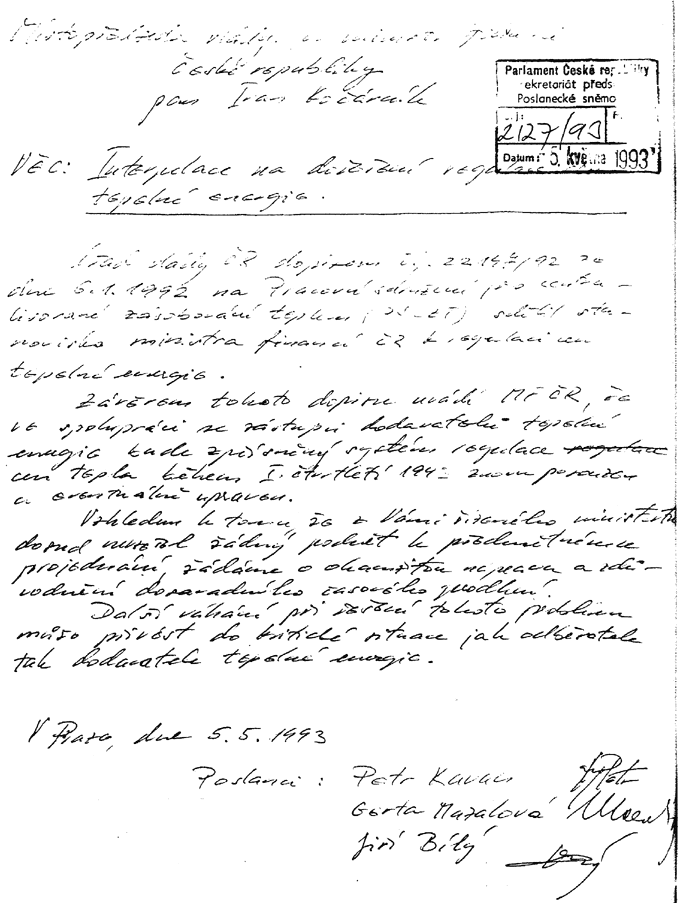 Místopředseda vlády a ministr financí
České republiky
pan Ivan Kočárník
Parlament České republiky
sekretariát předs
Poslanecké sněmo
2127/93
Datum: 5. května 1993
VĚC: Interpelace na dořešení regulace
tepelné energie.
Úřad vlády ČR dopisem č.j. 22147/92 ze
dne 6.1.1992 na Pracovní sdružení pro centra-
lizované zásobování teplem ( ) sdělil sta-
novisko ministra financí ČR k regulaci cen
tepelné energie.
Závěrem tohoto dopisu uvádí MF ČR, že
ve spolupráci se zástupci dodavatelů tepelné
energie bude zpřísněný systém regulace regulace
cen tepla během I. čtvrtletí 1993 znovu posouzen
a eventuálně upraven.
Vzhledem k tomu, že z Vámi řízeného ministerstva
dosud nevzešel žádný podnět k předmětnému
projednání, žádáme o okamžitou nápravu a zdů-
vodnění dosavadního časového prodlení.
Další váhání při řešení tohoto problému
může přivést do kritické situace jak odběratele
tak dodavatele tepelné energie.
V Praze, dne 5.5.1993
Poslanci : Petr Kavan
Gerta Mazalová
Jiří Bílý